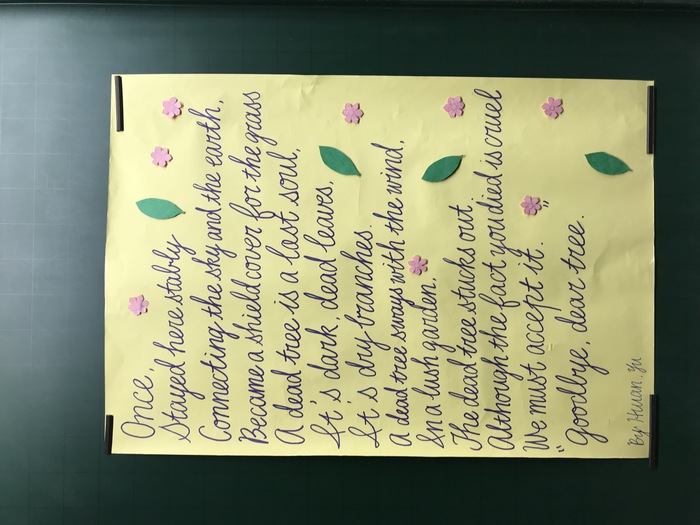 Once,
Stayed here stably
Connecting the sky and the earth,
Became a shield cover for the grass
A dead tree is a lost soul,
It's dark, dead leaves,
It's dry branches.
A dead tree sways with the wind,
In a lush garden.
The dead tree stucks out.
Although the fact you died is cruel
We must accept it. "
"Goodbye, dear tree.
By: Huan, Yu